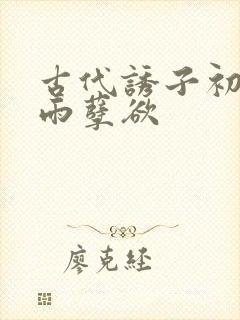 古代誘子初
雨孽欲
廖克經